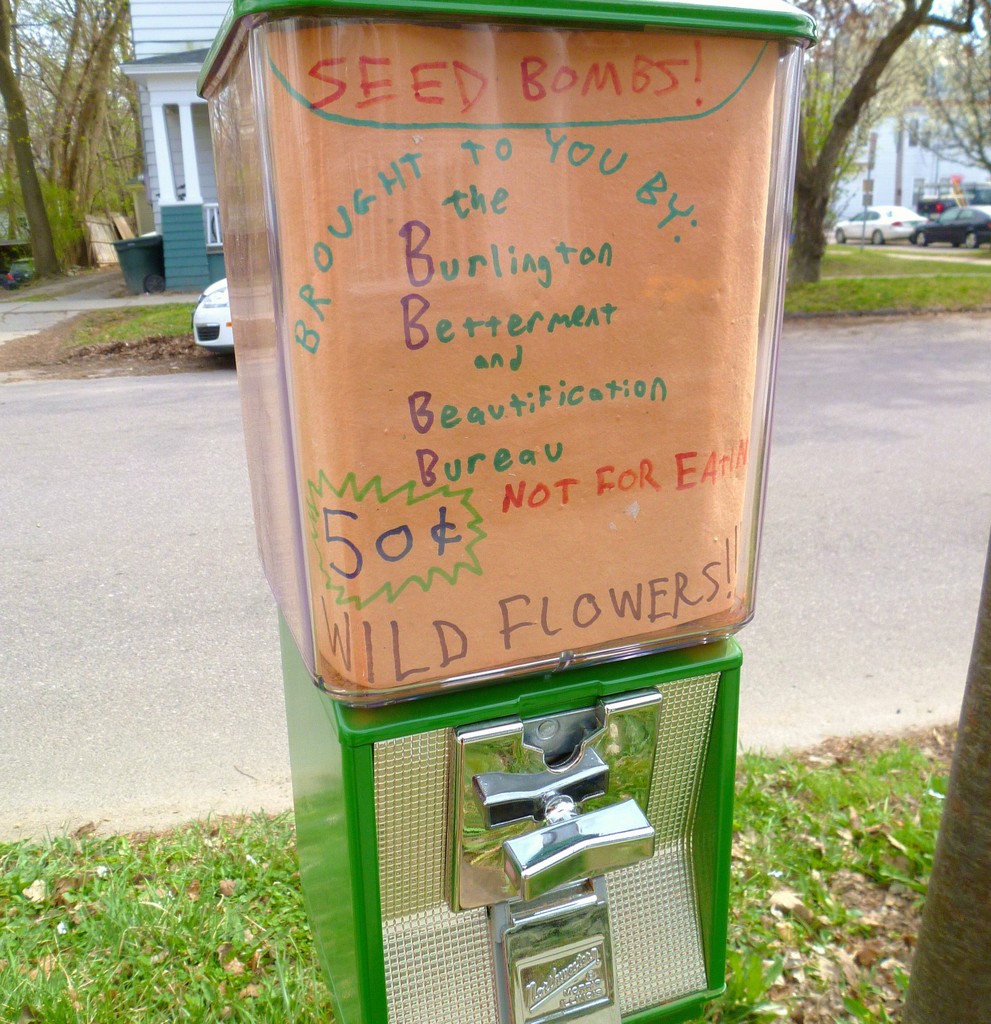 SEED BOMBS!
BROUGHT TO YOU BY:
the
Burlington
Betterment
and
Beautification
Bureau
NOT FOR EATIN
50¢
WILD FLOWERS!!
Northwestern
MORRIS
ILLINOIS